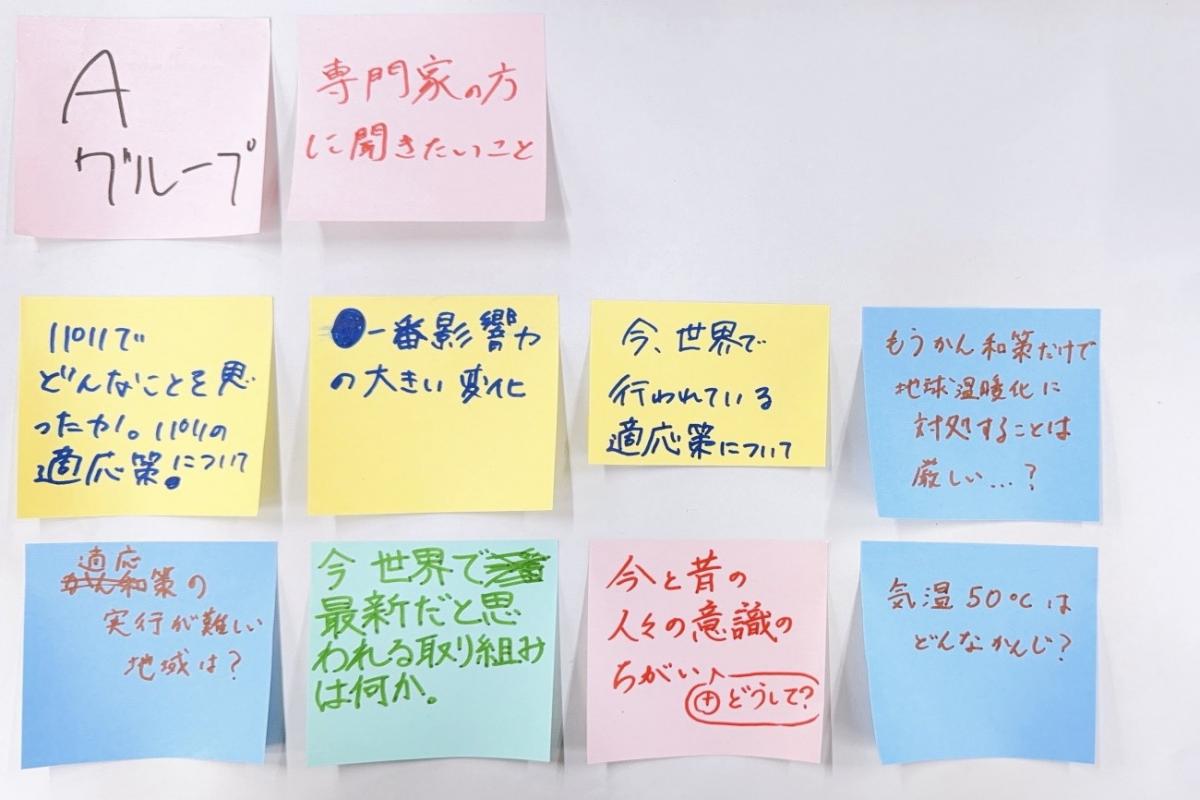 A
グループ
専門家の方
に聞きたいこと
パリで
どんなことを思
ったか。パリの
適応策について
一番影響力
の大きい変化
今、世界で
行われている
適応策について
もうかん和策だけで
地球温暖化に
対処することは
厳しい…?
適応
かん和策の
実行が難しい
地域は?
今世界で
最新だと思
われる取り組み
は何か。
今と昔の
人々の意識の
ちがい
⊕どうして?
気温50℃は
どんなかんじ?